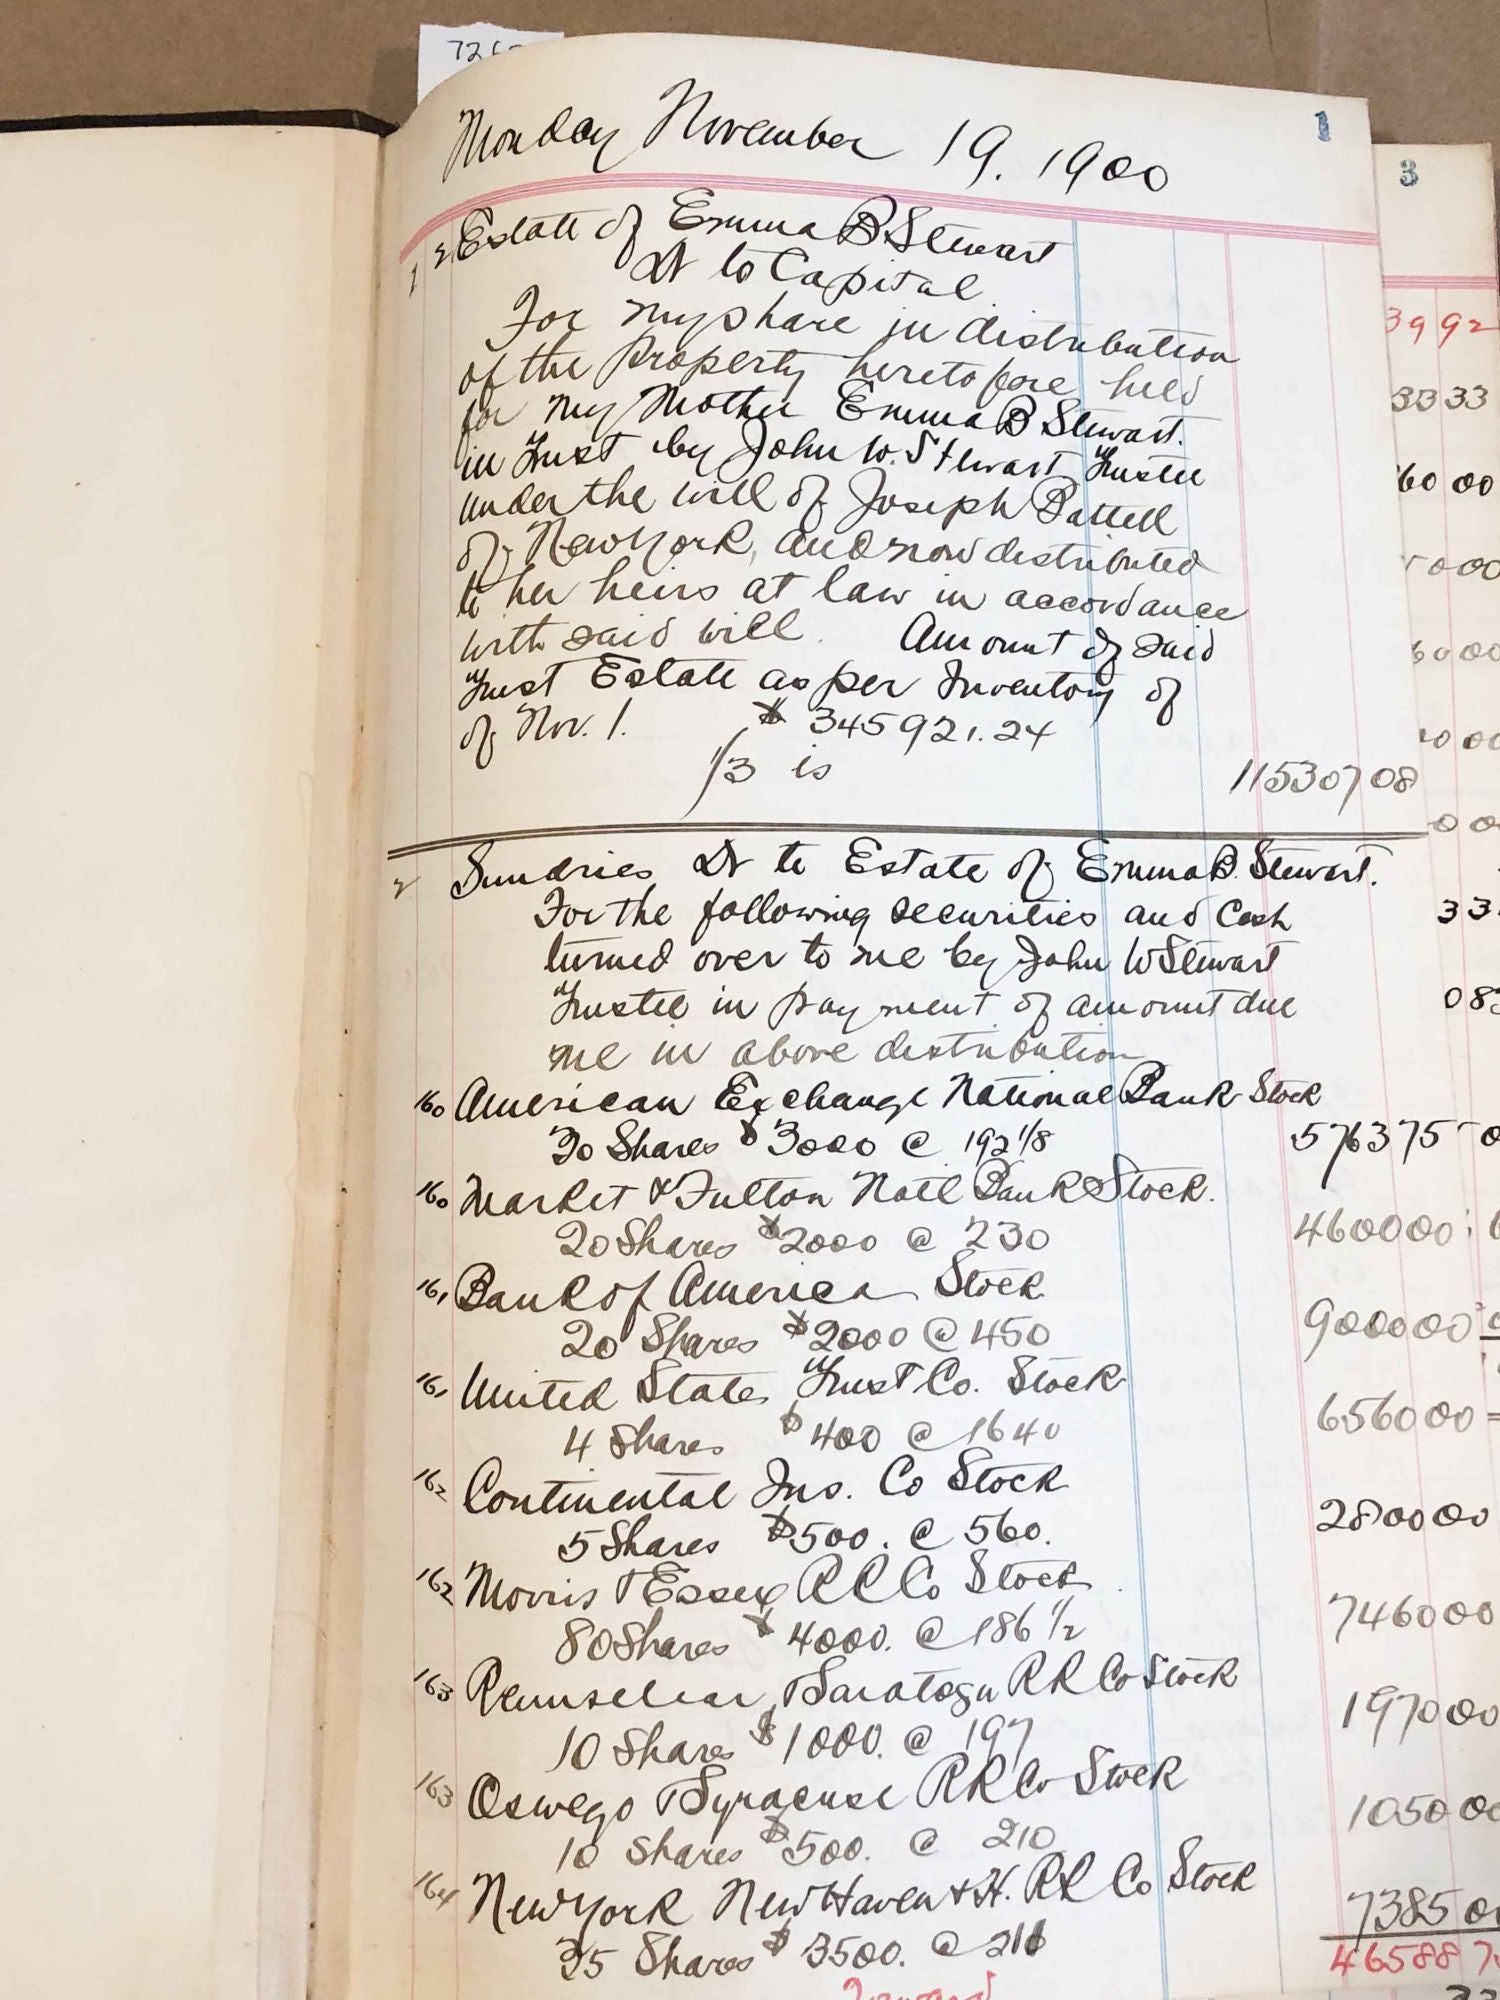 1
Monday November 19. 1900
3
1 2 Estate of Emma B Stewart
Dr to Capital
For my share in distribution
of the Property heretofore held
for my Mother Emma B Stewart.
in Trust by John W. Stewart Trustee
under the will of Joseph Battell
of New York, and now distributed
to her heirs at law in accordance
with said will. Amount of said
Trust Estate as per Inventory of
of Nov. 1. $ 345921.24
1/3 is 11530708
2 Sundries Dr to Estate of Emma B. Stewart.
For the following securities and Cash
turned over to me by John W Stewart
Trustee in payment of amount due
me in above distribution
160 American Exchange National Bank Stock
30 Shares $ 3000 @ 192 1/8 576375
160 Market & Fulton Natl Bank Stock.
20 Shares $2000 @ 230 460000
161 Bank of America Stock
20 Shares $2000 @ 450 900000
161 United States Trust Co. Stock
4 Shares $ 400 @ 1640 656000
162 Continental Ins. Co Stock
5 Shares $500. @ 560. 280000
162 Morris & Essex RR Co Stock
80 Shares $ 4000. @ 186 1/2 746000
163 Rennselear & Saratoga RR Co Stock
10 Shares $1000. @ 197 197000
163 Oswego & Syracuse RR Co Stock
10 Shares $500. @ 210 105000
164 New York New Haven & H. RR Co Stock
35 Shares $ 3500. @ 211 738500
46588 7
Forward
3992
3333
60 00